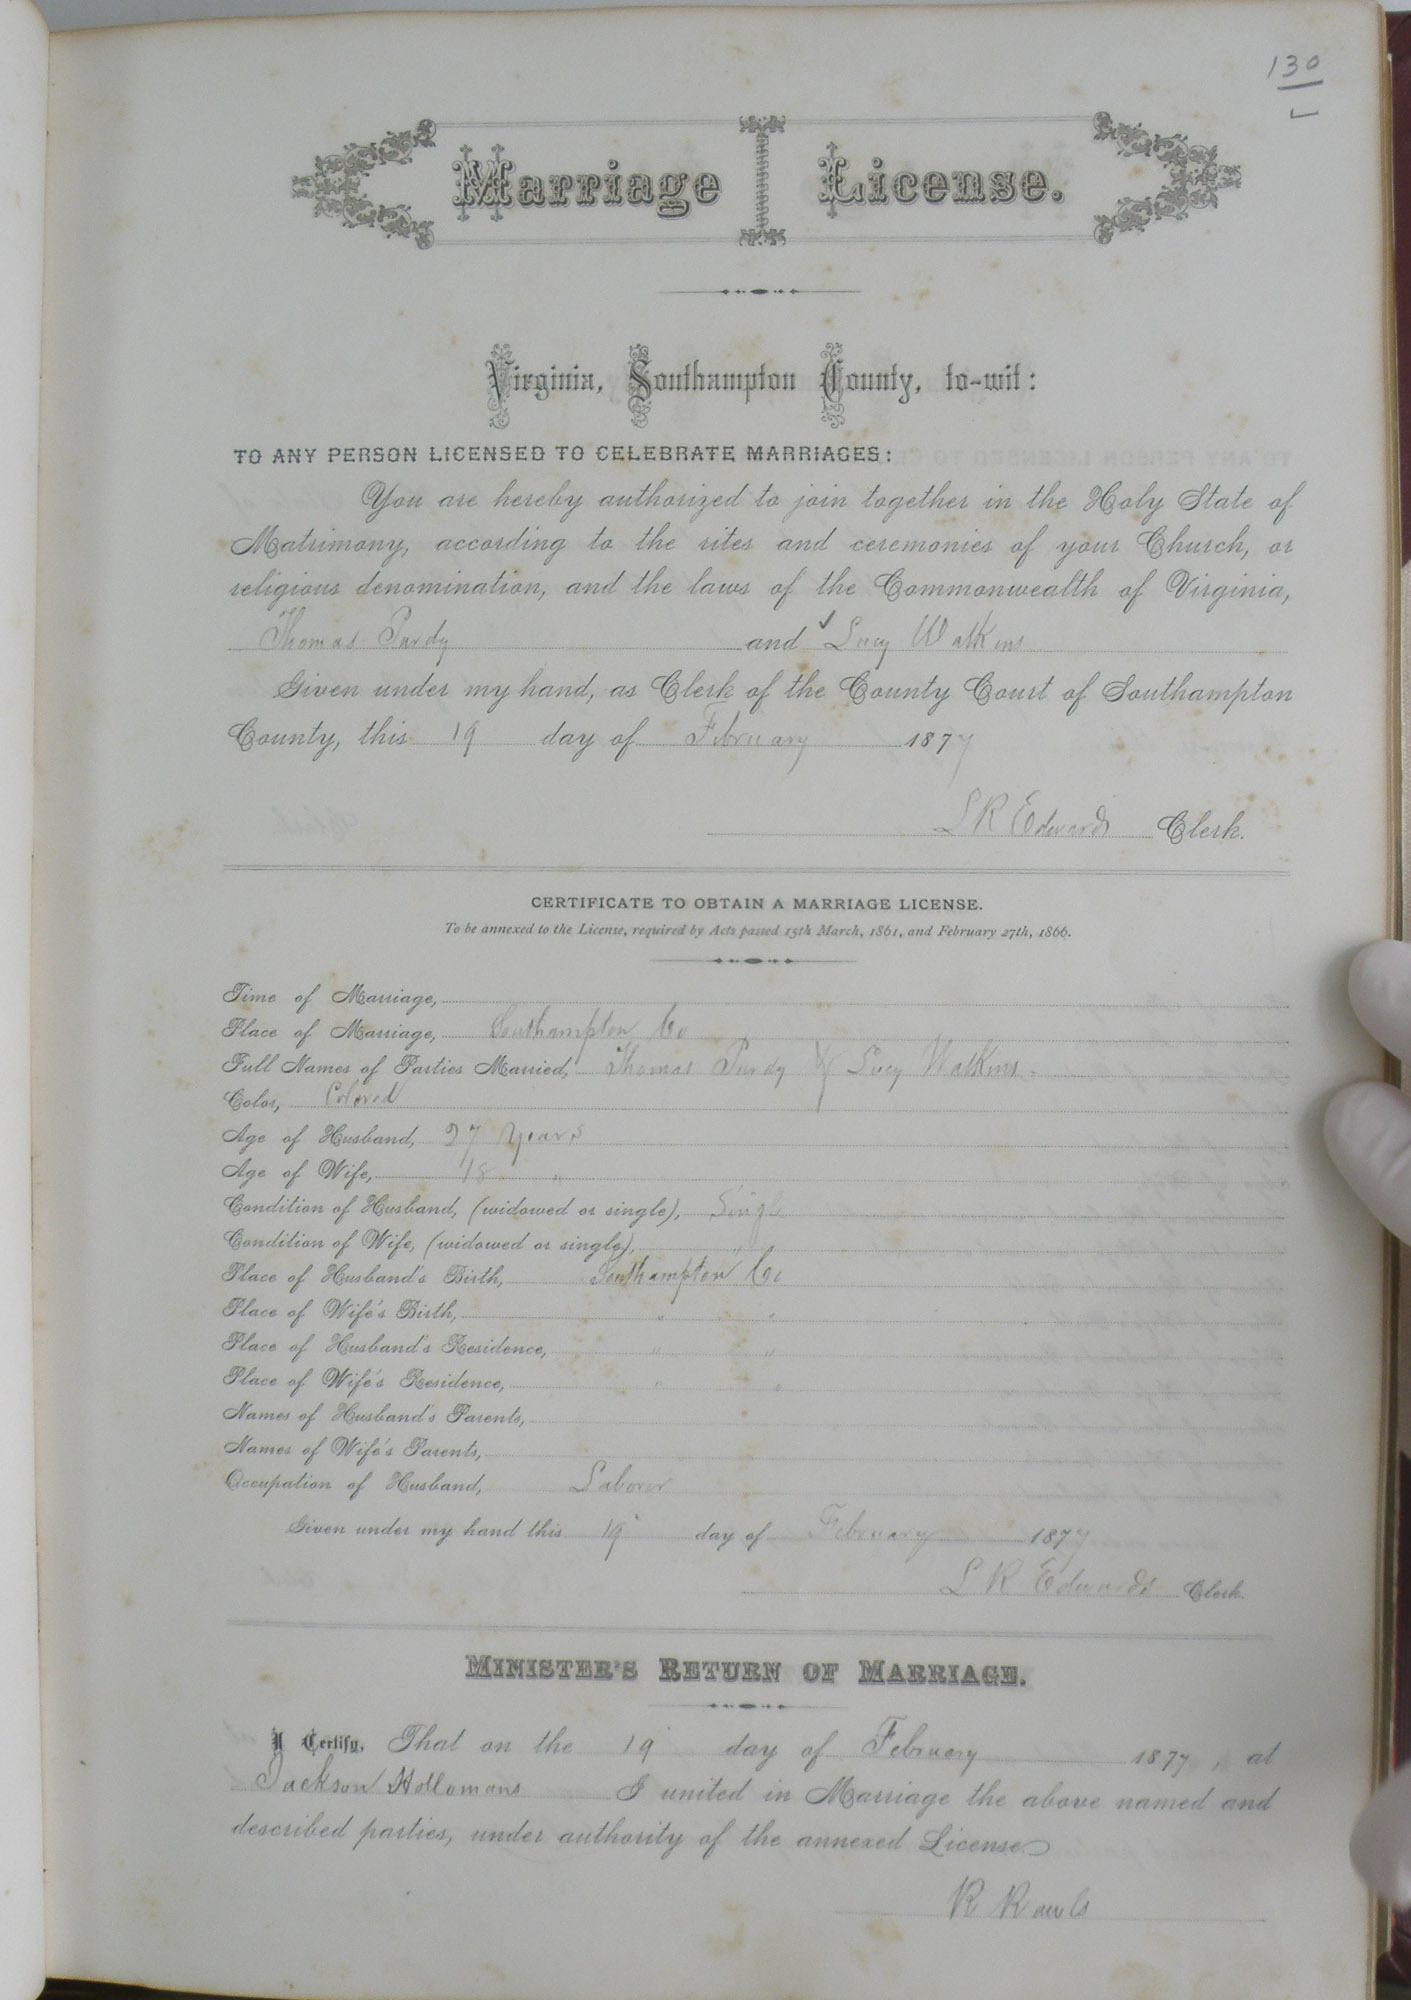 130
Marriage License.
Virginia, Southampton County, to-wit:
TO ANY PERSON LICENSED TO CELEBRATE MARRIAGES:
You are hereby authorized to join together in the Holy State of
Matrimony, according to the rites and ceremonies of your Church, or
religious denomination, and the laws of the Commonwealth of Virginia,
Thomas Purdy and ✓ Lucy Watkins
Given under my hand, as Clerk of the County Court of Southampton
County, this 19 day of February 1877
L R Edwards Clerk.
CERTIFICATE TO OBTAIN A MARRIAGE LICENSE.
To be annexed to the License, required by Acts passed 15th March, 1861, and February 27th, 1866.
Time of Marriage,
Place of Marriage, Southampton Co
Full Names of Parties Married, Thomas Purdy & Lucy Watkins
Color, Colored
Age of Husband, 27 Years
Age of Wife, 18 "
Condition of Husband, (widowed or single), Single
Condition of Wife, (widowed or single), "
Place of Husband's Birth, Southampton Co
Place of Wife's Birth, " "
Place of Husband's Residence, " "
Place of Wife's Residence, " "
Names of Husband's Parents,
Names of Wife's Parents,
Occupation of Husband, Laborer
Given under my hand this 19 day of February 1877
L R Edwards Clerk.
MINISTER'S RETURN OF MARRIAGE.
I Certify, That on the 19 day of February 1877, at
Jackson Hollomans I united in Marriage the above named and
described parties, under authority of the annexed License
R Rawls